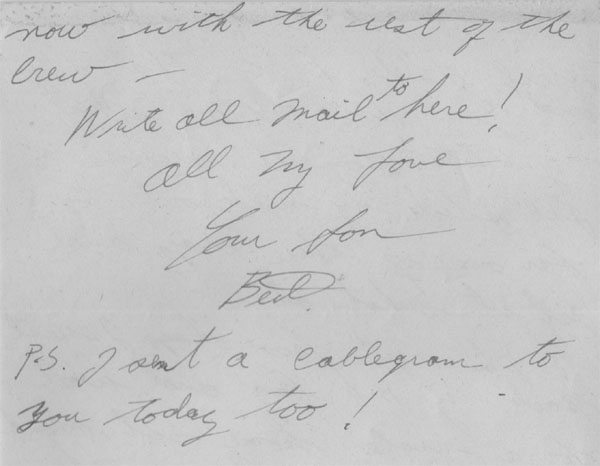 now with the rest of the
crew –
Write all mail to here!
All My Love
Your Son
P.S. I sent a cablegram to
you today too!